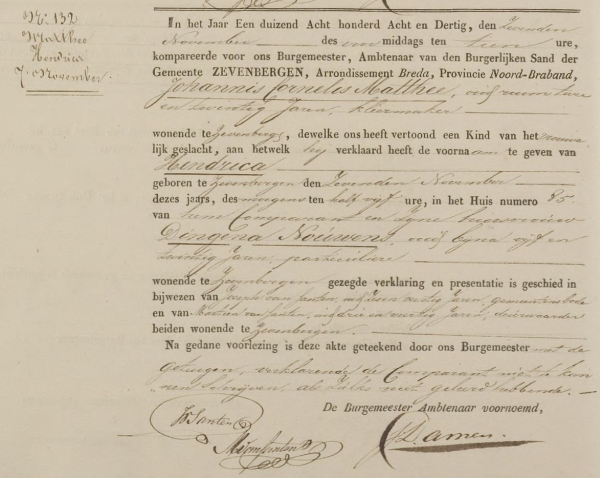 No. 132
Matthee
Hendrica
7. November
In het Jaar Een duizend Acht honderd Acht en Dertig, den Zevenden
November des voormiddags ten tien ure,
kompareerde voor ons Burgemeester, Ambtenaar van den Burgerlijken Sand der
Gemeente ZEVENBERGEN, Arrondissement Breda, Provincie Noord-Braband,
Johannis Cornelis Matthee, oud ruim twee
en twintig Jaren, kleermaker
wonende te Zevenbergen, dewelke ons heeft vertoond een Kind van het vrouwe
lijk geslacht, aan hetwelk hij verklaard heeft de voornaam te geven van
Hendrica
geboren te Zevenbergen den Zevenden November
dezes jaars, des morgens ten half vijf ure, in het Huis numero 85
van hem Comparant en zijne huisvrouw
Dingena Nouwens, oud bijna vijf en
twintig Jaren, particuliere
wonende te Zevenbergen, gezegde verklaring en presentatie is geschied in
bijwezen van Joseph van Santen, oud veertig Jaren, gemeentensbode
en van Martin van Santen, oud drie en veertig Jaren,
beiden wonende te Zevenbergen.
Na gedane voorlezing is deze akte geteekend door ons Burgemeester met de
getuigen, verklarende de Comparant niet te kun
nen schrijven, als zulks niet geleerd hebbende.
De Burgemeester Ambtenaar voornoemd,
JvSanten
MvanSanten
Damen.